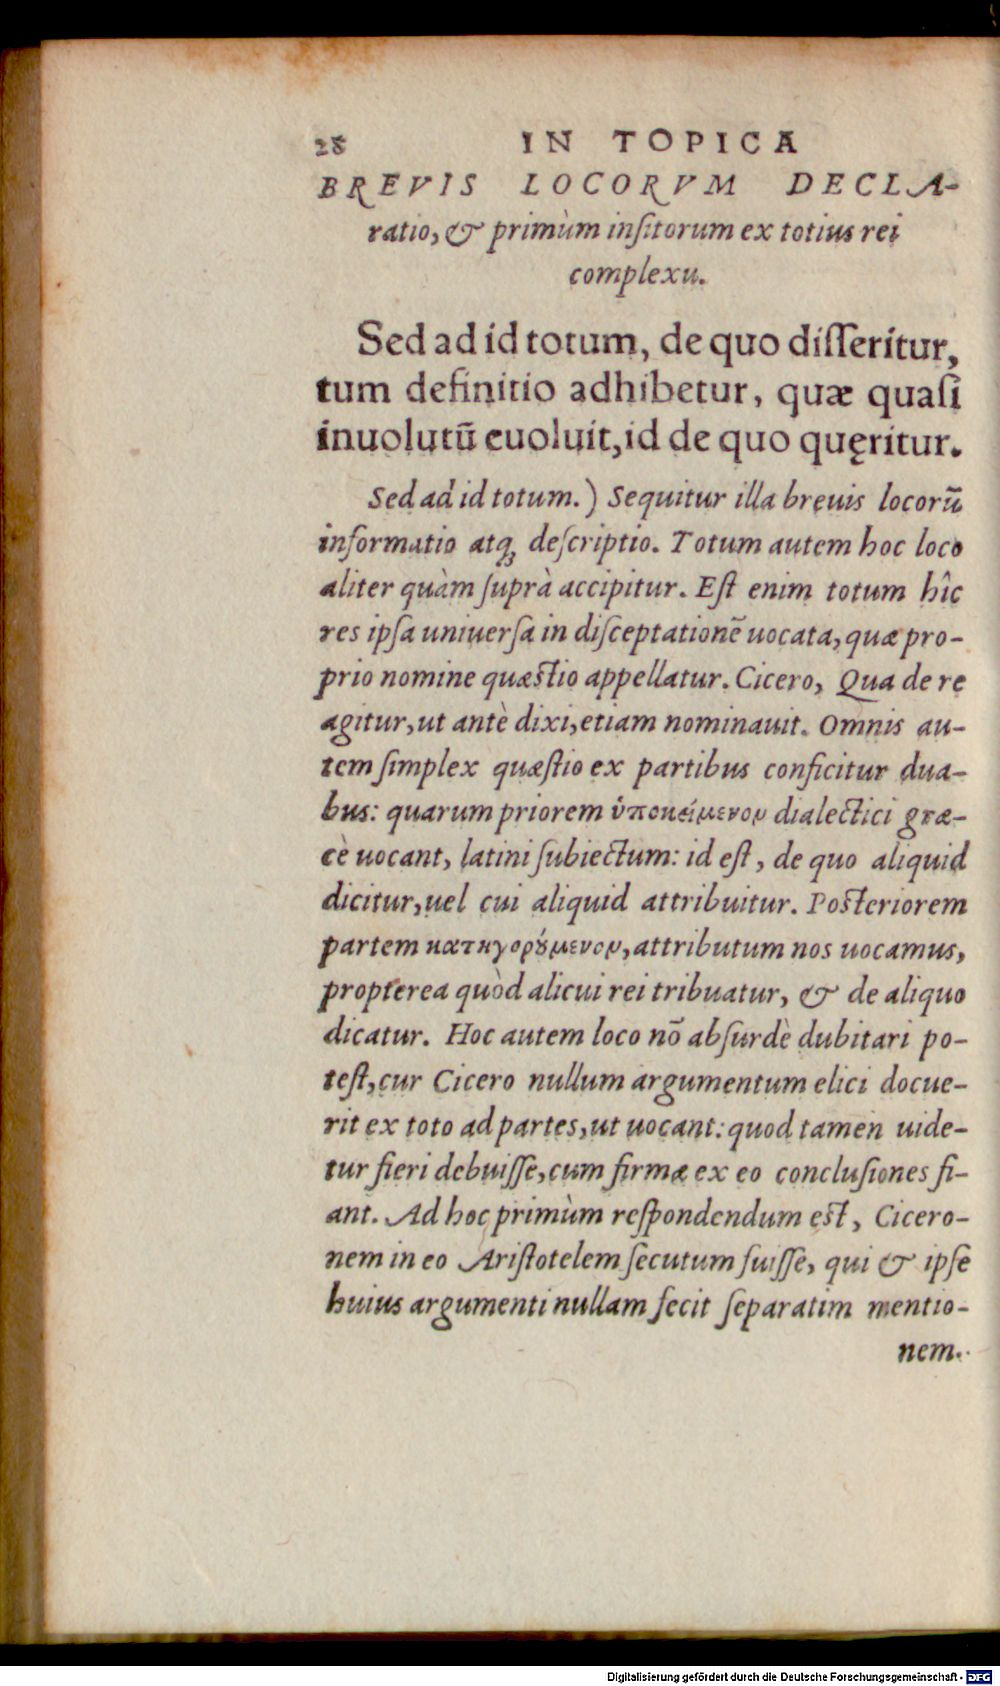 28 IN TOPICA
BREVIS LOCORVM DECLA-
ratio, & primùm insitorum ex totius rei
complexu.
Sed ad id totum, de quo disseritur,
tum definitio adhibetur, quæ quasi
inuolutū euoluit, id de quo quęritur.
Sed ad id totum.) Sequitur illa breuis locorū
informatio atq; descriptio. Totum autem hoc loco
aliter quàm suprà accipitur. Est enim totum hîc
res ipsa uniuersa in disceptationē uocata, quæ pro-
prio nomine quæstio appellatur. Cicero, Qua de re
agitur, ut antè dixi, etiam nominauit. Omnis au-
tem simplex quæstio ex partibus conficitur dua-
bus: quarum priorem ὑποκείμενον dialectici græ-
cè uocant, latini subiectum: id est, de quo aliquid
dicitur, uel cui aliquid attribuitur. Posteriorem
partem κατηγορούμενον, attributum nos uocamus,
propterea quòd alicui rei tribuatur, & de aliquo
dicatur. Hoc autem loco nō absurdè dubitari po-
test, cur Cicero nullum argumentum elici docue-
rit ex toto ad partes, ut uocant: quod tamen uide-
tur fieri debuisse, cum firmæ ex eo conclusiones fi-
ant. Ad hoc primùm respondendum est, Cicero-
nem in eo Aristotelem secutum fuisse, qui & ipse
huius argumenti nullam fecit separatim mentio-
nem.
Digitalisierung gefördert durch die Deutsche Forschungsgemeinschaft - DFG